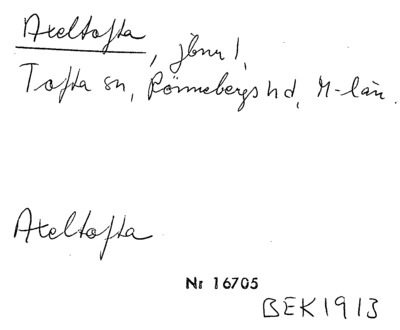 Axeltofta, jbnr 1,
Tofta sn, Rönnebergs hd, M-län.
Axeltofta
Nr 16705
BEK1913